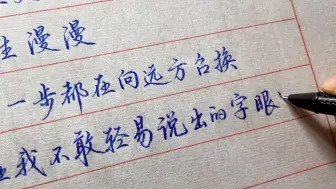 生漫漫
一步都在向远方召换
我不敢轻易说出的字眼